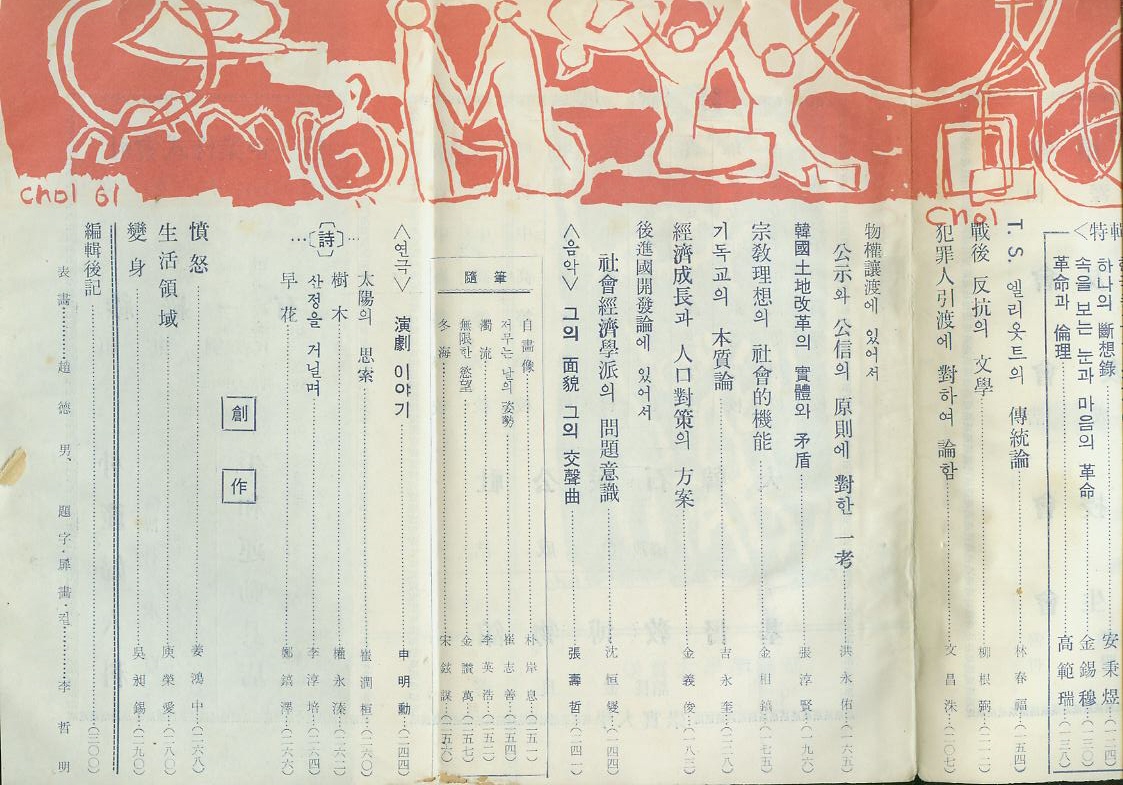 Choi 61
Choi
<特輯
하나의 斷想錄 安秉煜 (一二四)
속을 보는 눈과 마음의 革命 金錫穆 (一三〇)
革命과 倫理 高範瑞 (一三八)
T.S. 엘리옷트의 傳統論 林春福 (一五四)
戰後 反抗의 文學 柳根弼 (二一二)
犯罪人引渡에 對하여 論함 文昌洙 (二〇七)
物權讓渡에 있어서
公示와 公信의 原則에 對한 一考 洪永佑 (一六五)
韓國土地改革의 實體와 矛盾 張淳賢 (一九六)
宗敎理想의 社會的機能 金相鎬 (一七五)
기독교의 本質論 吉永奎 (二二八)
經濟成長과 人口對策의 方案 金義俊 (一八三)
後進國開發論에 있어서
社會經濟學派의 問題意識 沈恒燮 (一四四)
<음악> 그의 面貌 그의 交聲曲 張壽哲 (二四一)
隨筆
自畫像 朴岸息 (二五一)
저무는 날의 姿勢 崔志善 (二五四)
濁流 李英浩 (二五二)
無限한 慾望 金讚萬 (二五七)
冬海 宋鉉謀 (二五六)
<연극> 演劇 이야기 申明勳 (二四四)
…〔詩〕…
太陽의 思索 崔潤桓 (二六〇)
樹木 權永溱 (二六二)
산정을 거닐며 李淳培 (二六四)
早花 鄭鎬澤 (二六六)
創作
憤怒 姜鴻中 (二六八)
生活領域 庾榮愛 (二八〇)
變身 吳昶錫 (二九〇)
編輯後記 (三〇〇)
表畫 趙德男、題字·扉畫·컽 李哲明